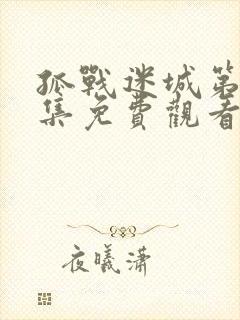 孤戰迷城第
集免費觀看
夜曦瀟